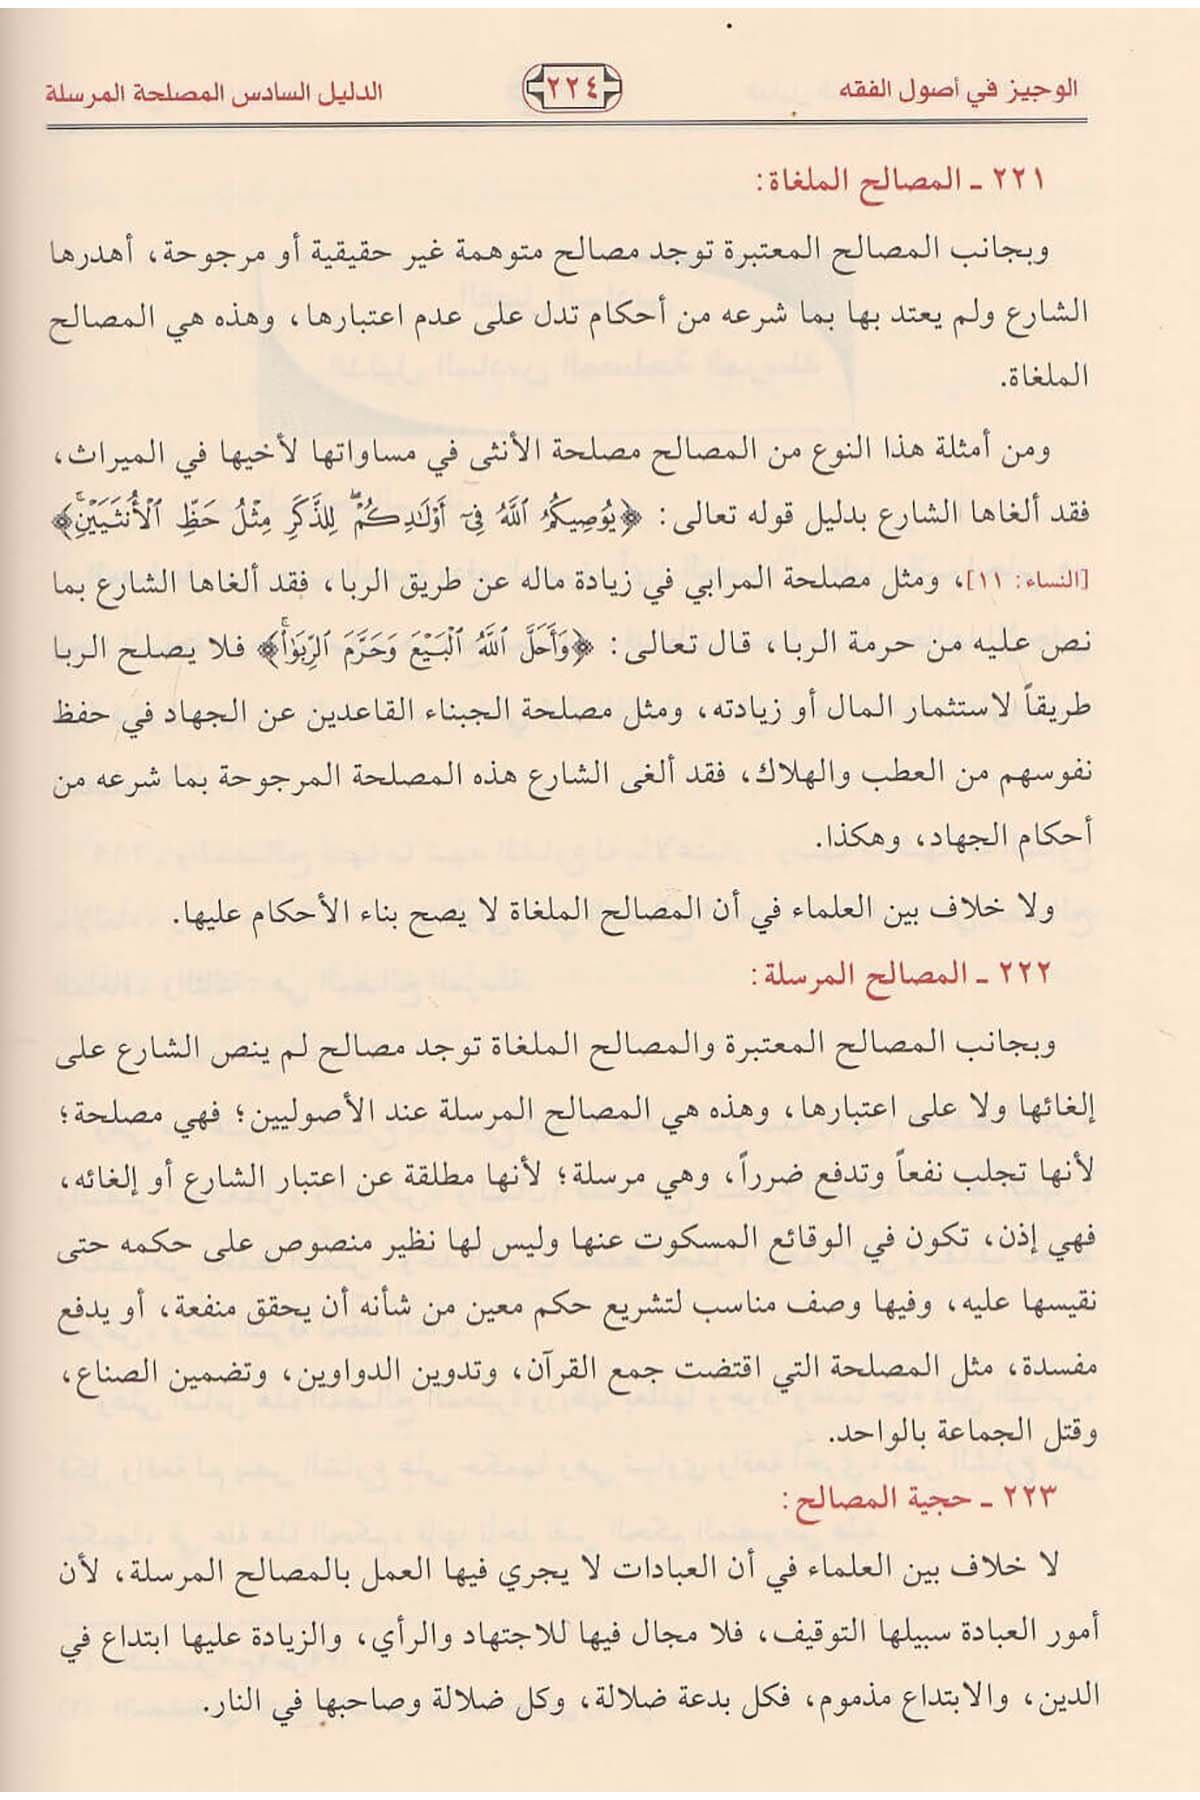 الوجيز في أصول الفقه
٢٢٤
الدليل السادس المصلحة المرسلة
٢٢١ ـ المصالح الملغاة:
وبجانب المصالح المعتبرة توجد مصالح متوهمة غير حقيقية أو مرجوحة، أهدرها
الشارع ولم يعتد بها بما شرعه من أحكام تدل على عدم اعتبارها، وهذه هي المصالح
الملغاة.
ومن أمثلة هذا النوع من المصالح مصلحة الأنثى في مساواتها لأخيها في الميراث،
فقد ألغاها الشارع بدليل قوله تعالى: ﴿يُوصِيكُمُ ٱللَّهُ فِىٓ أَوْلَـٰدِكُمْ ۖ لِلذَّكَرِ مِثْلُ حَظِّ ٱلْأُنثَيَيْنِ ۚ﴾
[النساء: ١١]، ومثل مصلحة المرابي في زيادة ماله عن طريق الربا، فقد ألغاها الشارع بما
نص عليه من حرمة الربا، قال تعالى: ﴿وَأَحَلَّ ٱللَّهُ ٱلْبَيْعَ وَحَرَّمَ ٱلرِّبَوٰا۟ ۚ﴾ فلا يصلح الربا
طريقاً لاستثمار المال أو زيادته، ومثل مصلحة الجبناء القاعدين عن الجهاد في حفظ
نفوسهم من العطب والهلاك، فقد ألغى الشارع هذه المصلحة المرجوحة بما شرعه من
أحكام الجهاد، وهكذا.
ولا خلاف بين العلماء في أن المصالح الملغاة لا يصح بناء الأحكام عليها.
٢٢٢ ـ المصالح المرسلة:
وبجانب المصالح المعتبرة والمصالح الملغاة توجد مصالح لم ينص الشارع على
إلغائها ولا على اعتبارها، وهذه هي المصالح المرسلة عند الأصوليين؛ فهي مصلحة؛
لأنها تجلب نفعاً وتدفع ضرراً، وهي مرسلة؛ لأنها مطلقة عن اعتبار الشارع أو إلغائه،
فهي إذن، تكون في الوقائع المسكوت عنها وليس لها نظير منصوص على حكمه حتى
نقيسها عليه، وفيها وصف مناسب لتشريع حكم معين من شأنه أن يحقق منفعة، أو يدفع
مفسدة، مثل المصلحة التي اقتضت جمع القرآن، وتدوين الدواوين، وتضمين الصناع،
وقتل الجماعة بالواحد.
٢٢٣ ـ حجية المصالح:
لا خلاف بين العلماء في أن العبادات لا يجري فيها العمل بالمصالح المرسلة، لأن
أمور العبادة سبيلها التوقيف، فلا مجال فيها للاجتهاد والرأي، والزيادة عليها ابتداع في
الدين، والابتداع مذموم، فكل بدعة ضلالة، وكل ضلالة وصاحبها في النار.